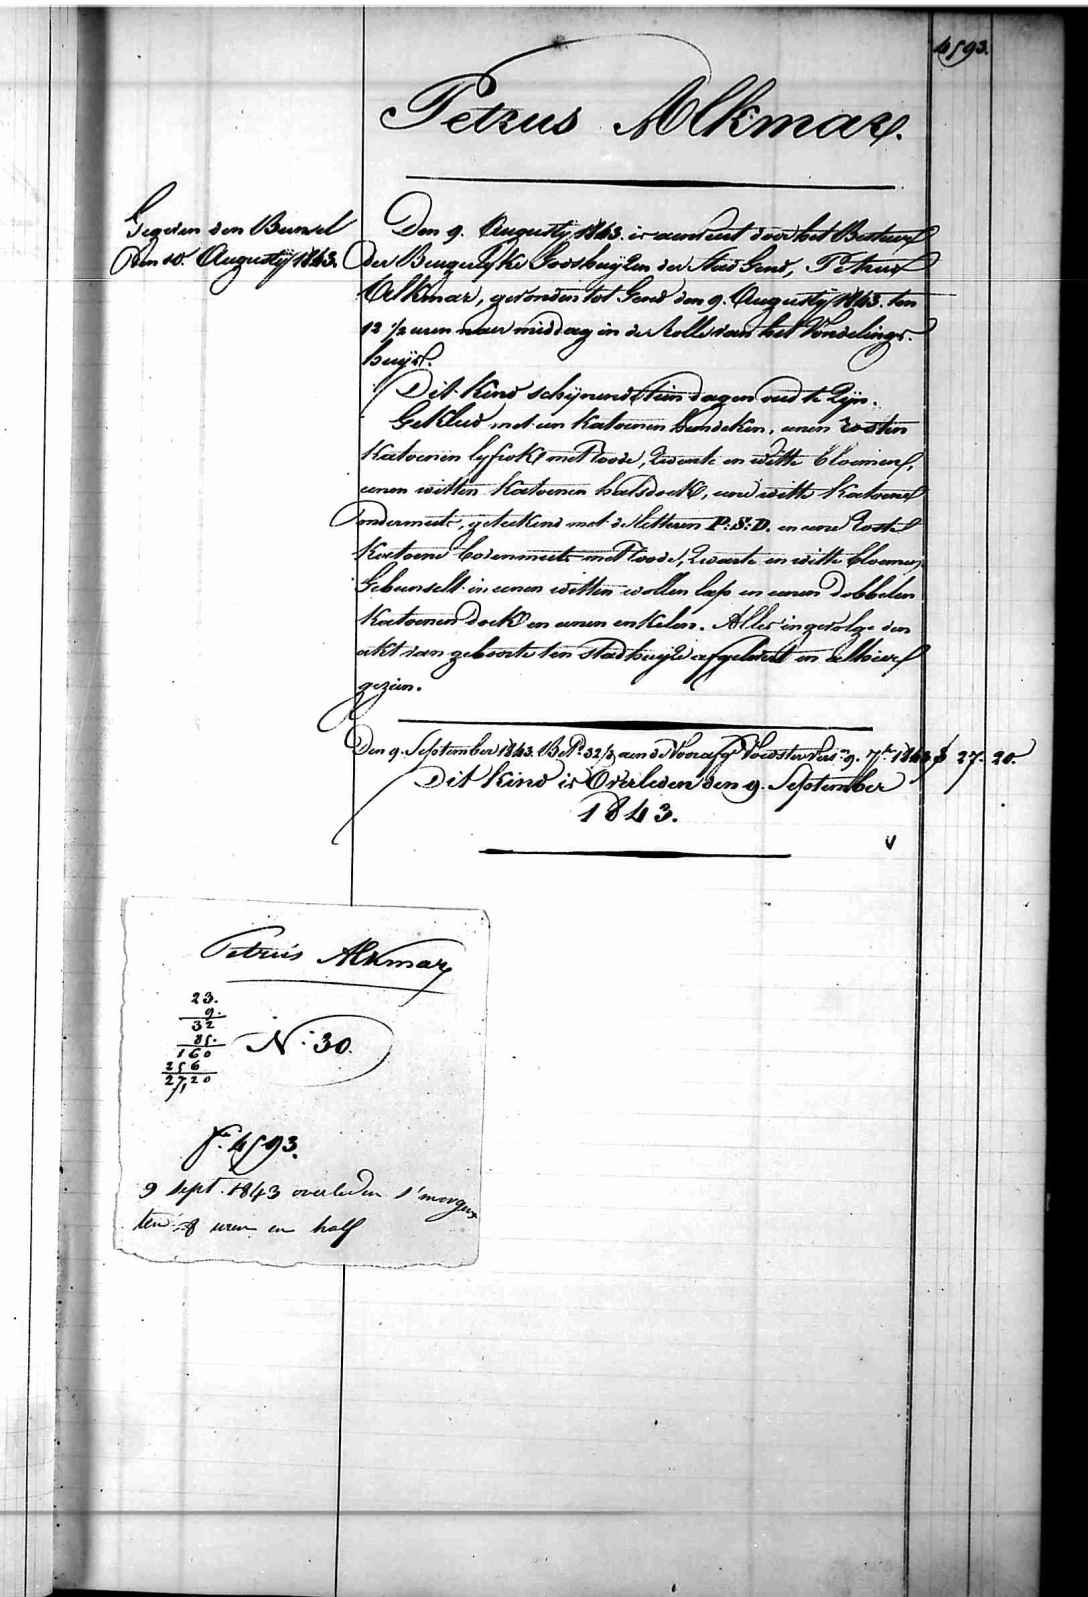 4593.
Petrus Alkmar.
Gegeven den Bunsel
den 10. Augusty 1843.
Den 9. Augusty 1843. is aenveird door het Bestuer
der Burgerlyke Godshuyzen der Stad Gend, Petrus
Alkmar, gevonden tot Gend den 9. Augusty 1843. ten
12 1/2 uren naer middag in de Rolle van het Vondelings-
huys.
Dit Kind schynende tien dagen oud te zyn.
Gekleed met een katoenen hemdeken, eenen rosten
katoenen lyfrok met roode, zwarte en witte bloemen,
eenen witten katoenen halsdoek, eene witte katoene
ondermuts, geteekend met de letteren P:S:D. en eene roste
katoene bovenmuts met roode, zwarte en witte bloemen,
Gebunselt in eenen witten wollen lap en eenen dobbelen
katoenen doek en eenen enkelen. Alles ingevolge den
akt van geboorte ten Stadhuyze afgeleverd en alhier
gezien.
Den 9. September 1843. Bet. 32 aen de Voedster 9. 7r 1843 27-20.
Dit kind is Overleden den 9. September
1843.
Petrus Alkmar
23.
9.
32
85.
160
256
27,20
N: 30.
f. 4593.
9 sept. 1843 overleden s'morgens
ten 8 uren en half